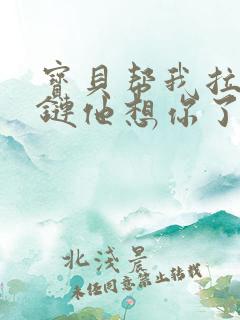 寳貝帮我拉
鏈他想你了
北淺晨
未经同意禁止转载